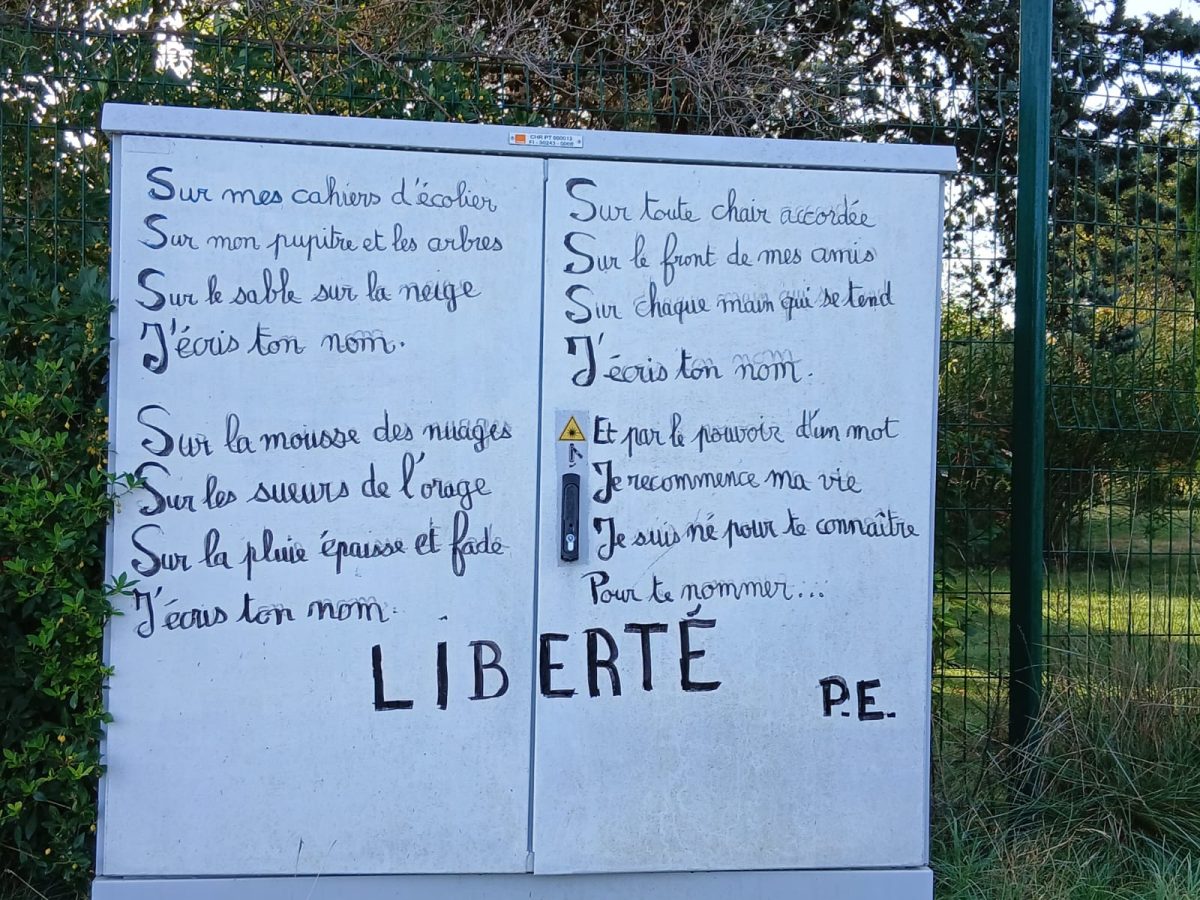 CHR PT 000013
FI - 50243 - 0006
Sur mes cahiers d'écolier
Sur mon pupitre et les arbres
Sur le sable sur la neige
J'écris ton nom.
Sur la mousse des nuages
Sur les sueurs de l'orage
Sur la pluie épaisse et fade
J'écris ton nom.
Sur toute chair accordée
Sur le front de mes amis
Sur chaque main qui se tend
J'écris ton nom.
Et par le pouvoir d'un mot
Je recommence ma vie
Je suis né pour te connaître
Pour te nommer...
LIBERTÉ
P.E.